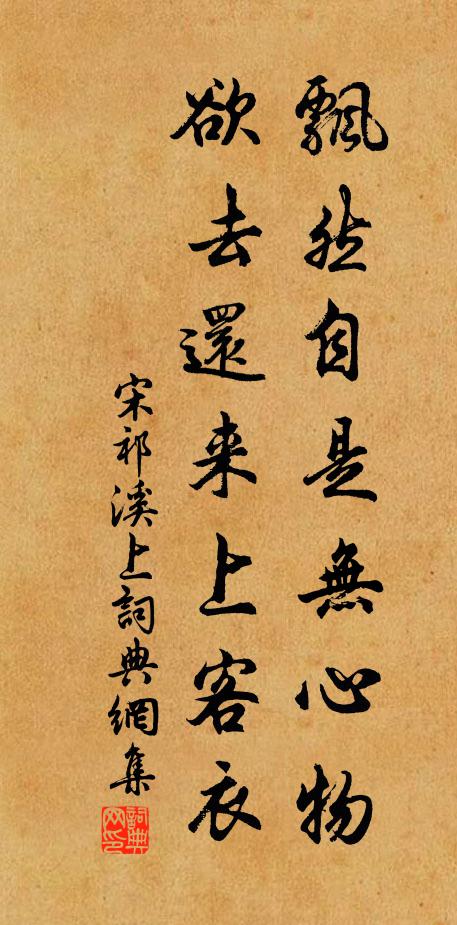 飄然自是無心物
欲去還来上客衣
宋祁溪上詞典網集
詞典网印